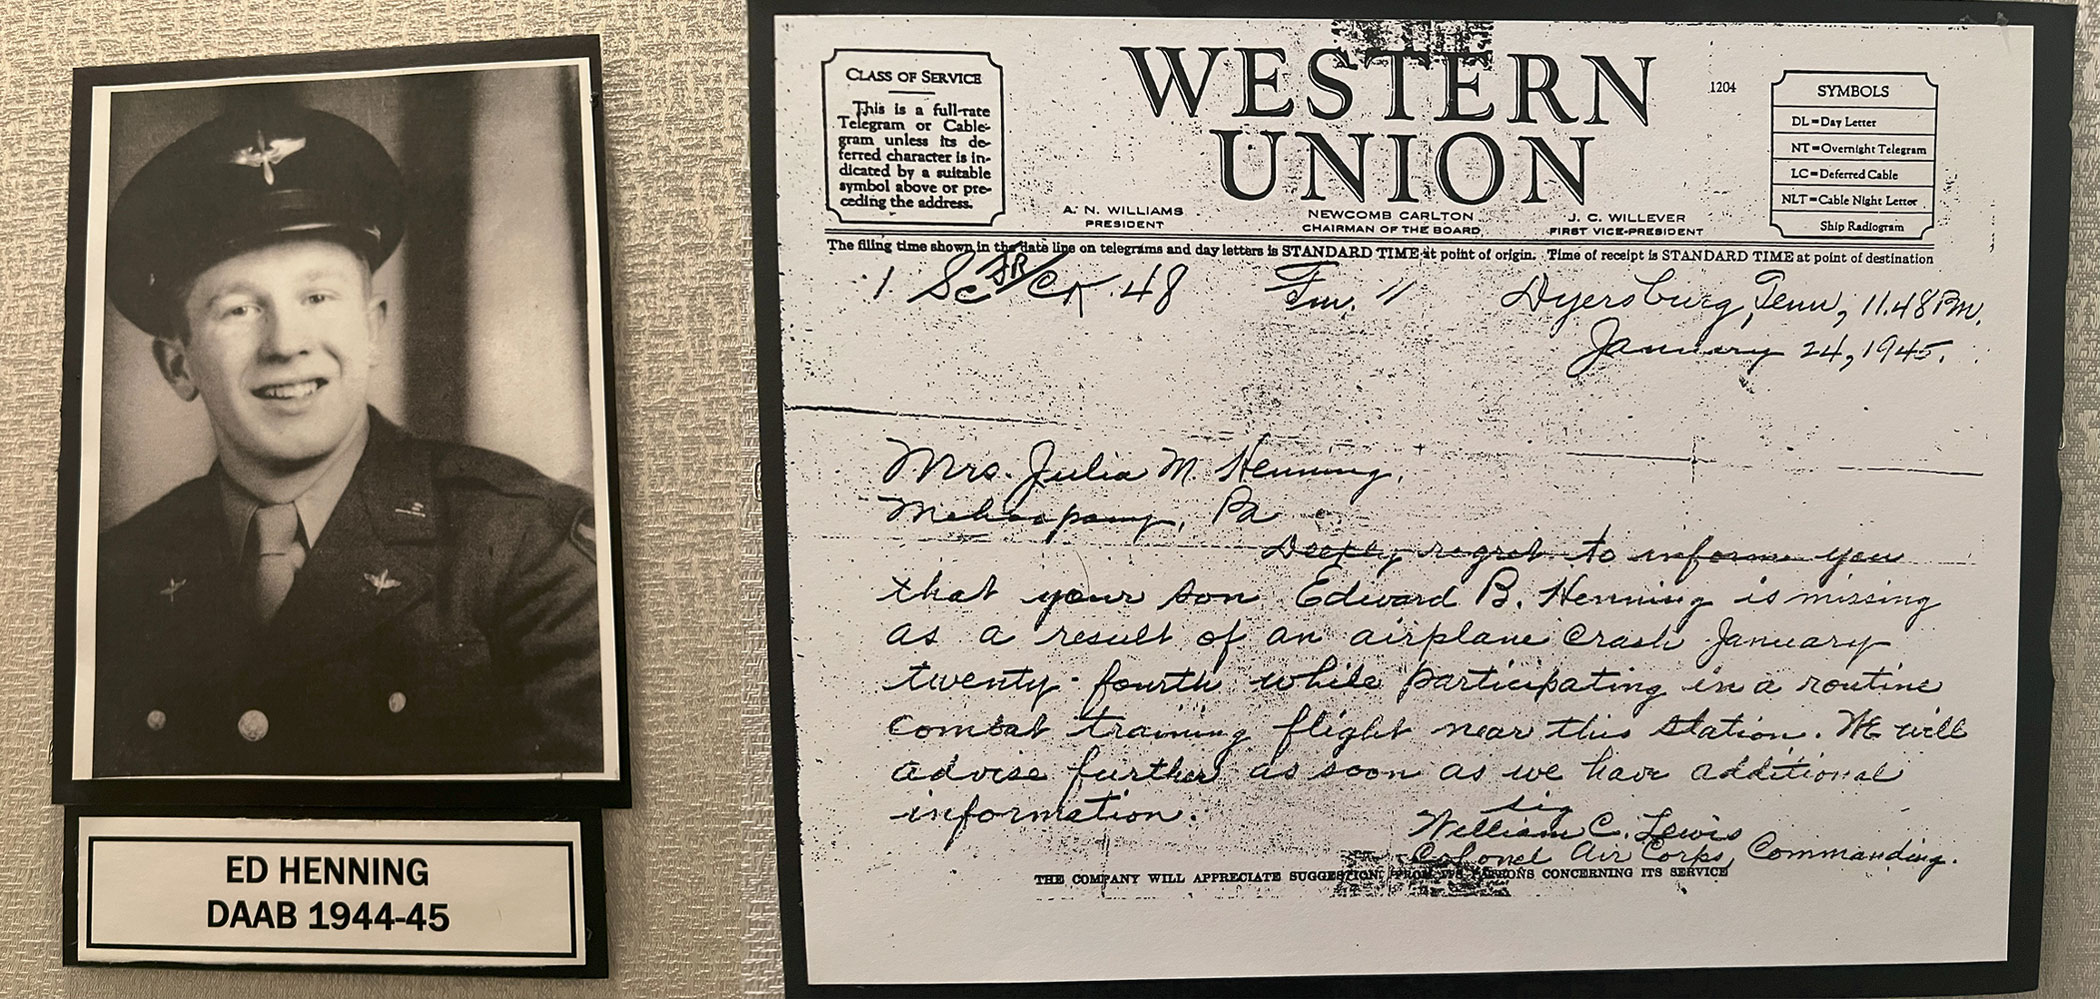 ED HENNING
DAAB 1944-45
CLASS OF SERVICE
This is a full-rate
Telegram or Cable-
gram unless its de-
ferred character is in-
dicated by a suitable
symbol above or pre-
ceding the address.
WESTERN
UNION
1204
SYMBOLS
DL=Day Letter
NT=Overnight Telegram
LC=Deferred Cable
NLT=Cable Night Letter
Ship Radiogram
A. N. WILLIAMS
PRESIDENT
NEWCOMB CARLTON
CHAIRMAN OF THE BOARD
J. C. WILLEVER
FIRST VICE-PRESIDENT
The filing time shown in the date line on telegrams and day letters is STANDARD TIME at point of origin. Time of receipt is STANDARD TIME at point of destination
1 48 11 Dyersburg, Tenn, 11.48 Pm.
January 24, 1945.
Mrs. Julia M. Henning,
Mehoopany, Pa
Deeply regret to inform you
that your son Edward B. Henning is missing
as a result of an airplane crash January
twenty-fourth while participating in a routine
combat training flight near this station. We will
advise further as soon as we have additional
information.
sig
William C. Lewis
Colonel Air Corps, Commanding.
THE COMPANY WILL APPRECIATE SUGGESTIONS FROM ITS PATRONS CONCERNING ITS SERVICE